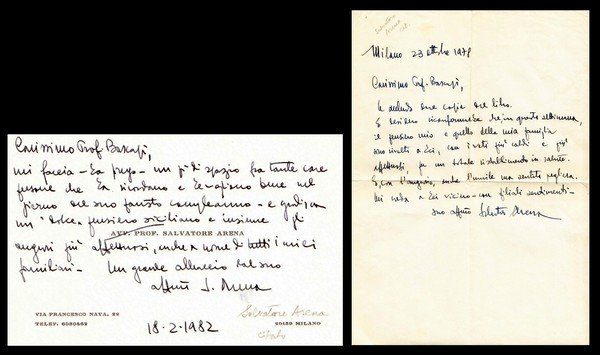 Carissimo Prof. Bascapè,
mi faccia - La prego - un pò di spazio fra tante care
persone che La ricordano e Le vogliono bene nel
giorno del suo fausto compleanno - e gradisca
un "dolce" pensiero siciliano e insieme gli
AVV. PROF. SALVATORE ARENA
auguri più affettuosi, anche a nome di tutti i miei
familiari - Un grande abbraccio dal suo
aff.mo S. Arena
VIA FRANCESCO NAVA, 29
TELEF.
18.2.1982
Salvatore Arena
20159 MILANO
Salvatore
Arena
Milano 23 ottobre 1978
Carissimo Prof. Bascapè,
Le accludo due copie del libro.
E desidero riconfermarLe che, in questa settimana,
il pensiero mio e quello della mia famiglia
sono rivolti a Lei, con i voti più caldi e più
affettuosi, per un totale ristabilimento in salute.
E, con l'augurio, anche l'umile ma sentita preghiera.
Mi creda a Lei vicino - con filiali sentimenti -
suo aff.mo Salvatore Arena